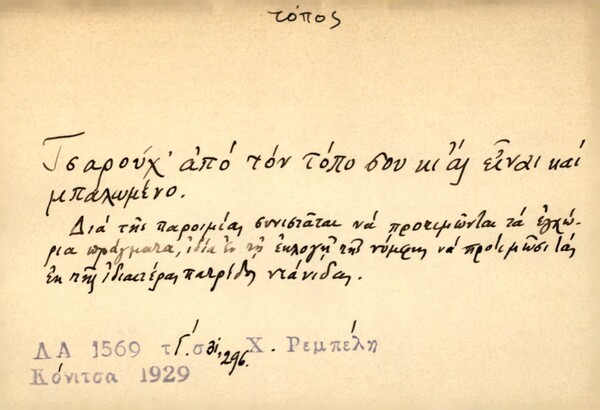 τόπος
Τσαρούχ' ἀπό τόν τόπο σου κι ἄς εἶναι καί
μπαλωμένο.
Διά τῆς παροιμίας συνιστᾶται νά προτιμῶνται τά ἐγχώ-
ρια πράγματα, ἰδίᾳ ἐν τῇ ἐκλογῇ τῆς νύμφης νά προτιμῶσι τάς
ἐκ τῆς ἰδιαιτέρας πατρίδος
ΛΑ 1569 τ Γ΄. σ 296. Χ. Ρεμπέλη
Κόνιτσα 1929